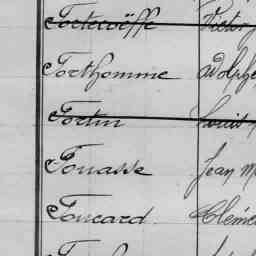 Forteroëffe Victor
Forthomme Adolphe
Fortin Louis
Fouasse Jean M
Foucard Cléme